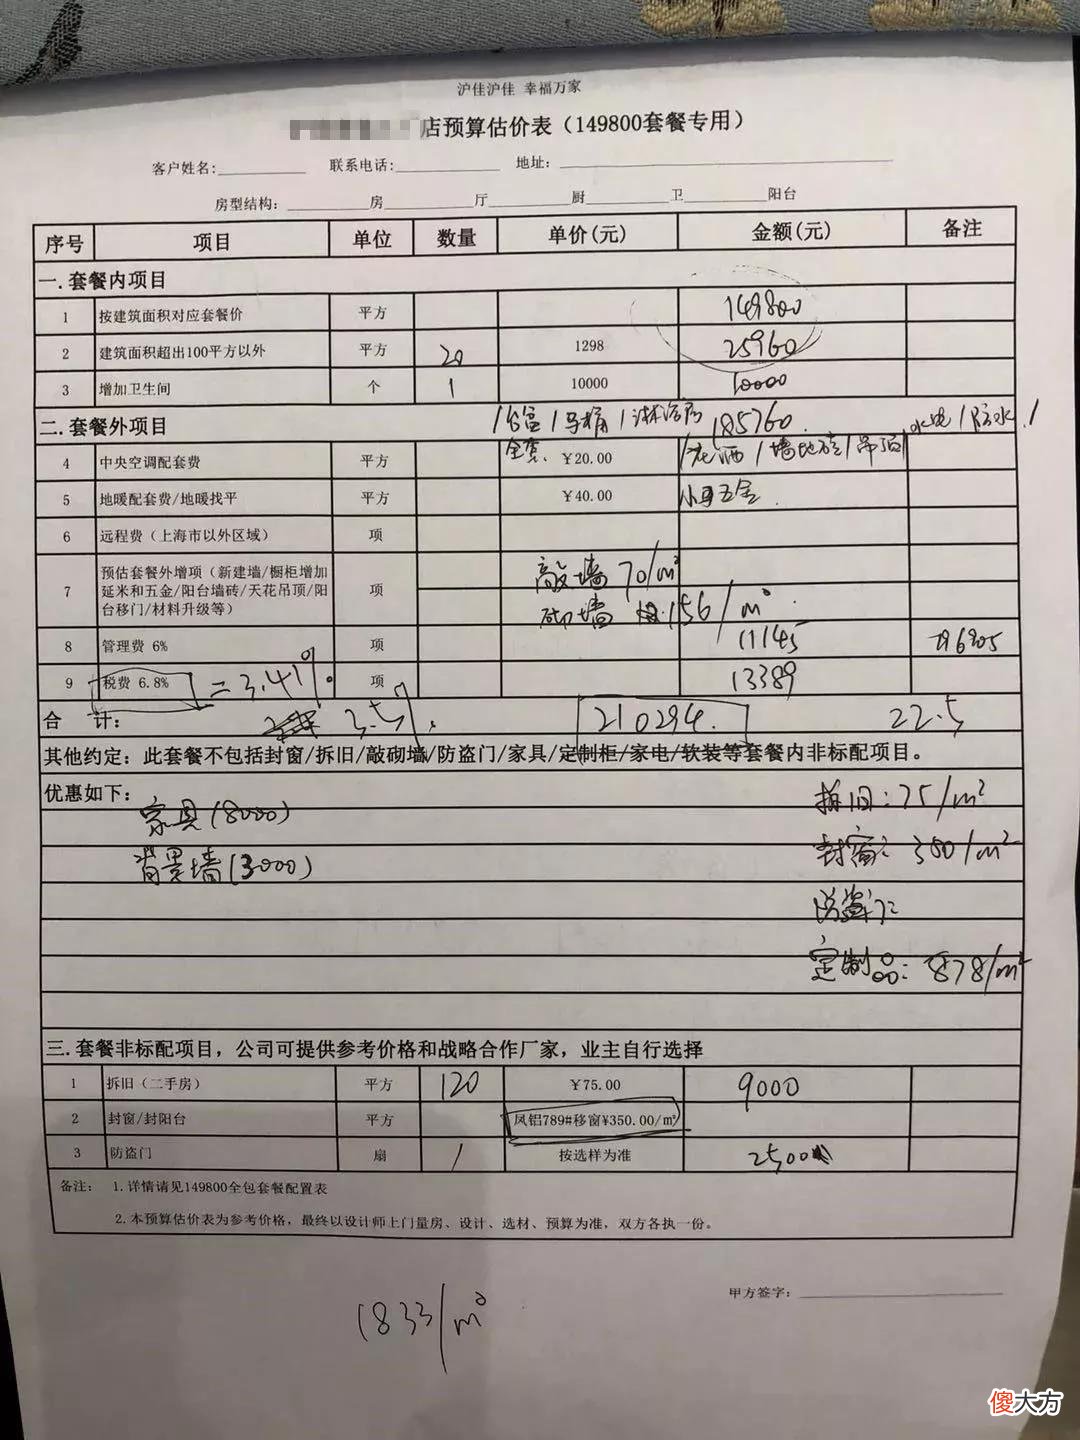 沪佳沪佳 幸福万家
店预算估价表（149800套餐专用）
客户姓名: 联系电话: 地址:
房型结构: 房 厅 厨 卫 阳台
序号 项目 单位 数量 单价(元) 金额(元) 备注
一.套餐内项目
1 按建筑面积对应套餐价 平方 149800
2 建筑面积超出100平方以外 平方 20 1298 25960
3 增加卫生间 个 1 10000 10000
二.套餐外项目 185760
4 中央空调配套费 平方 ¥20.00
5 地暖配套费/地暖找平 平方 ¥40.00 小五金
6 远程费（上海市以外区域） 项
7 预估套餐外增项（新建墙/橱柜增加延米和五金/阳台墙砖/天花吊顶/阳台移门/材料升级等） 项
敲墙 70/m²
砌墙 156/m²
8 管理费 6% 项 11145
9 税费 6.8% =3.41% 项 13389
合 计: 3.5% 210294. 22.5
其他约定: 此套餐不包括封窗/拆旧/敲砌墙/防盗门/家具/定制柜/家电/软装等套餐内非标配项目。
优惠如下:
家具(8000)
背景墙(3000)
拆旧: 75/m²
封窗: 350/m²
防盗门:
定制品: 878/m²
三.套餐非标配项目，公司可提供参考价格和战略合作厂家，业主自行选择
1 拆旧（二手房） 平方 120 ¥75.00 9000
2 封窗/封阳台 平方 凤铝789#移窗¥350.00/m²
3 防盗门 扇 1 按选样为准 2500
备注: 1.详情请见149800全包套餐配置表
2.本预算估价表为参考价格，最终以设计师上门量房、设计、选材、预算为准，双方各执一份。
甲方签字:
1833/m²
傻大方